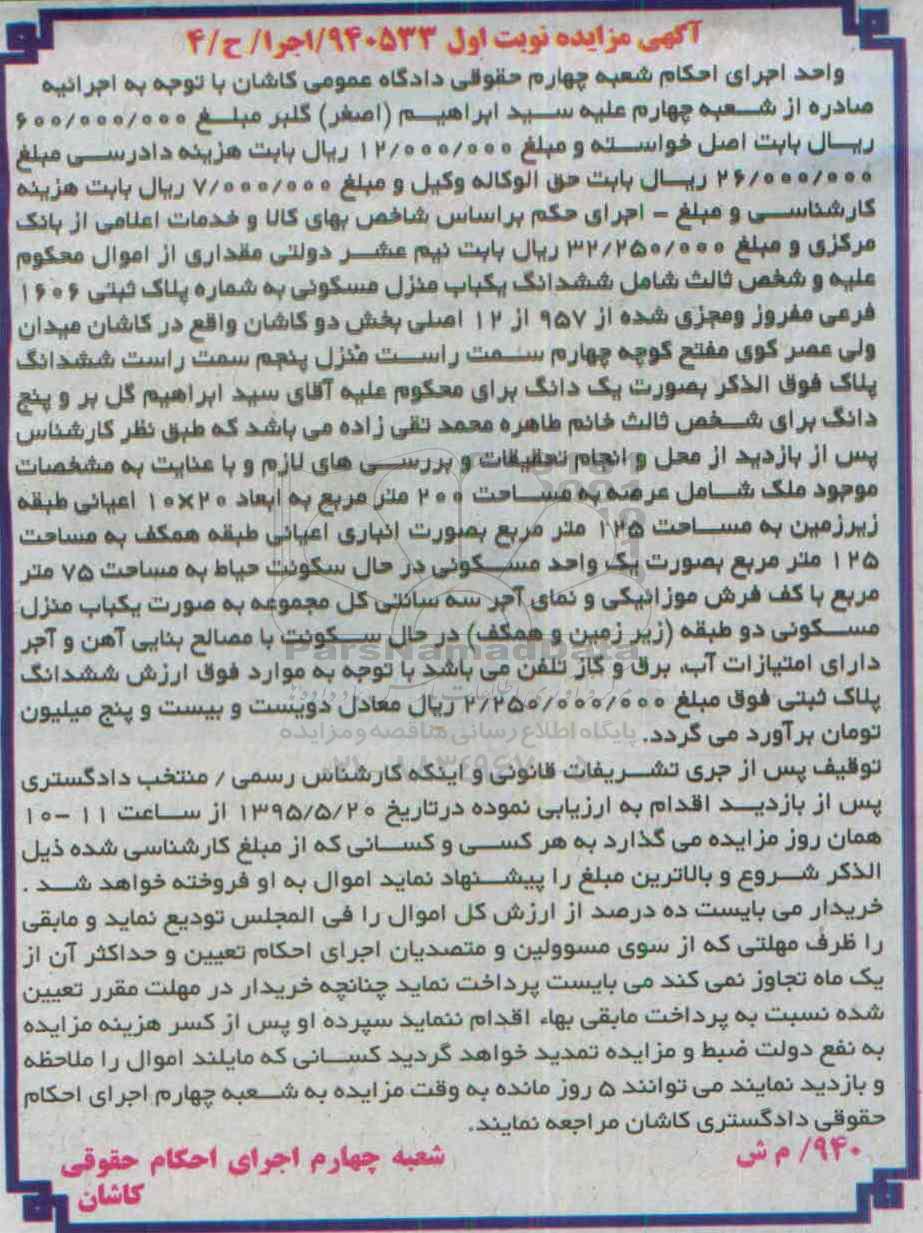 آگهی مزایده نوبت اول ۹۴۰۵۳۳/اجرا/ح/۴
واحد اجرای احکام شعبه چهارم حقوقی دادگاه عمومی کاشان با توجه به اجرائیه
صادره از شعبه چهارم علیه سید ابراهیم (اصغر) گلبر مبلغ ۶۰۰/۰۰۰/۰۰۰
ریال بابت اصل خواسته و مبلغ ۱۲/۰۰۰/۰۰۰ ریال بابت هزینه دادرسی مبلغ
۲۶/۰۰۰/۰۰۰ ریال بابت حق الوکاله وکیل و مبلغ ۷/۰۰۰/۰۰۰ ریال بابت هزینه
کارشناسی و مبلغ - اجرای حکم براساس شاخص بهای کالا و خدمات اعلامی از بانک
مرکزی و مبلغ ۳۲/۲۵۰/۰۰۰ ریال بابت نیم عشر دولتی مقداری از اموال محکوم
علیه و شخص ثالث شامل ششدانگ یکباب منزل مسکونی به شماره پلاک ثبتی ۱۶۰۶
فرعی مفروز ومجزی شده از ۹۵۷ از ۱۲ اصلی بخش دو کاشان واقع در کاشان میدان
ولی عصر کوی مفتح کوچه چهارم سمت راست منزل پنجم سمت راست ششدانگ
پلاک فوق الذکر بصورت یک دانگ برای محکوم علیه آقای سید ابراهیم گل بر و پنج
دانگ برای شخص ثالث خانم طاهره محمد تقی زاده می باشد که طبق نظر کارشناس
پس از بازدید از محل و انجام تحقیقات و بررسی های لازم و با عنایت به مشخصات
موجود ملک شامل عرصه به مساحت ۲۰۰ متر مربع به ابعاد ۲۰×۱۰ اعیانی طبقه
زیرزمین به مساحت ۱۲۵ متر مربع بصورت انباری اعیانی طبقه همکف به مساحت
۱۲۵ متر مربع بصورت یک واحد مسکونی در حال سکونت حیاط به مساحت ۷۵ متر
مربع با کف فرش موزائیکی و نمای آجر سه سانتی کل مجموعه به صورت یکباب منزل
مسکونی دو طبقه (زیر زمین و همکف) در حال سکونت با مصالح بنایی آهن و آجر
دارای امتیازات آب، برق و گاز تلفن می باشد با توجه به موارد فوق ارزش ششدانگ
پلاک ثبتی فوق مبلغ ۲/۲۵۰/۰۰۰/۰۰۰ ریال معادل دویست و بیست و پنج میلیون
تومان برآورد می گردد.
توقیف پس از جری تشریفات قانونی و اینکه کارشناس رسمی / منتخب دادگستری
پس از بازدید اقدام به ارزیابی نموده درتاریخ ۱۳۹۵/۵/۲۰ از ساعت ۱۱ -۱۰
همان روز مزایده می گذارد به هر کسی و کسانی که از مبلغ کارشناسی شده ذیل
الذکر شروع و بالاترین مبلغ را پیشنهاد نماید اموال به او فروخته خواهد شد .
خریدار می بایست ده درصد از ارزش کل اموال را فی المجلس تودیع نماید و مابقی
را ظرف مهلتی که از سوی مسوولین و متصدیان اجرای احکام تعیین و حداکثر آن از
یک ماه تجاوز نمی کند می بایست پرداخت نماید چنانچه خریدار در مهلت مقرر تعیین
شده نسبت به پرداخت مابقی بهاء اقدام ننماید سپرده او پس از کسر هزینه مزایده
به نفع دولت ضبط و مزایده تمدید خواهد گردید کسانی که مایلند اموال را ملاحظه
و بازدید نمایند می توانند ۵ روز مانده به وقت مزایده به شعبه چهارم اجرای احکام
حقوقی دادگستری کاشان مراجعه نمایند.
۹۴۰/ م ش
شعبه چهارم اجرای احکام حقوقی
کاشان
ParsNamadData
پایگاه اطلاع رسانی مناقصه و مزایده